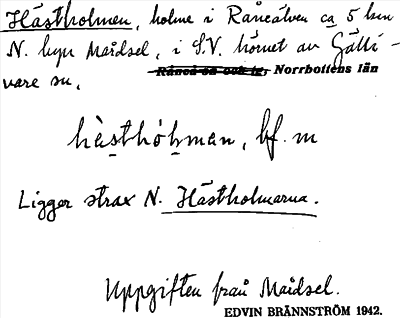 Hästholmen, holme i Råneälven ca 5 km
N. byn Maidsel, i S.V. hörnet av Gälli-
Råneå sn och tg, Norrbottens län
vare sn,
hàsthòḥman, bf. m
Ligger strax N. Hästholmarna.
Uppgiften från Maidsel.
EDVIN BRÄNNSTRÖM 1942.